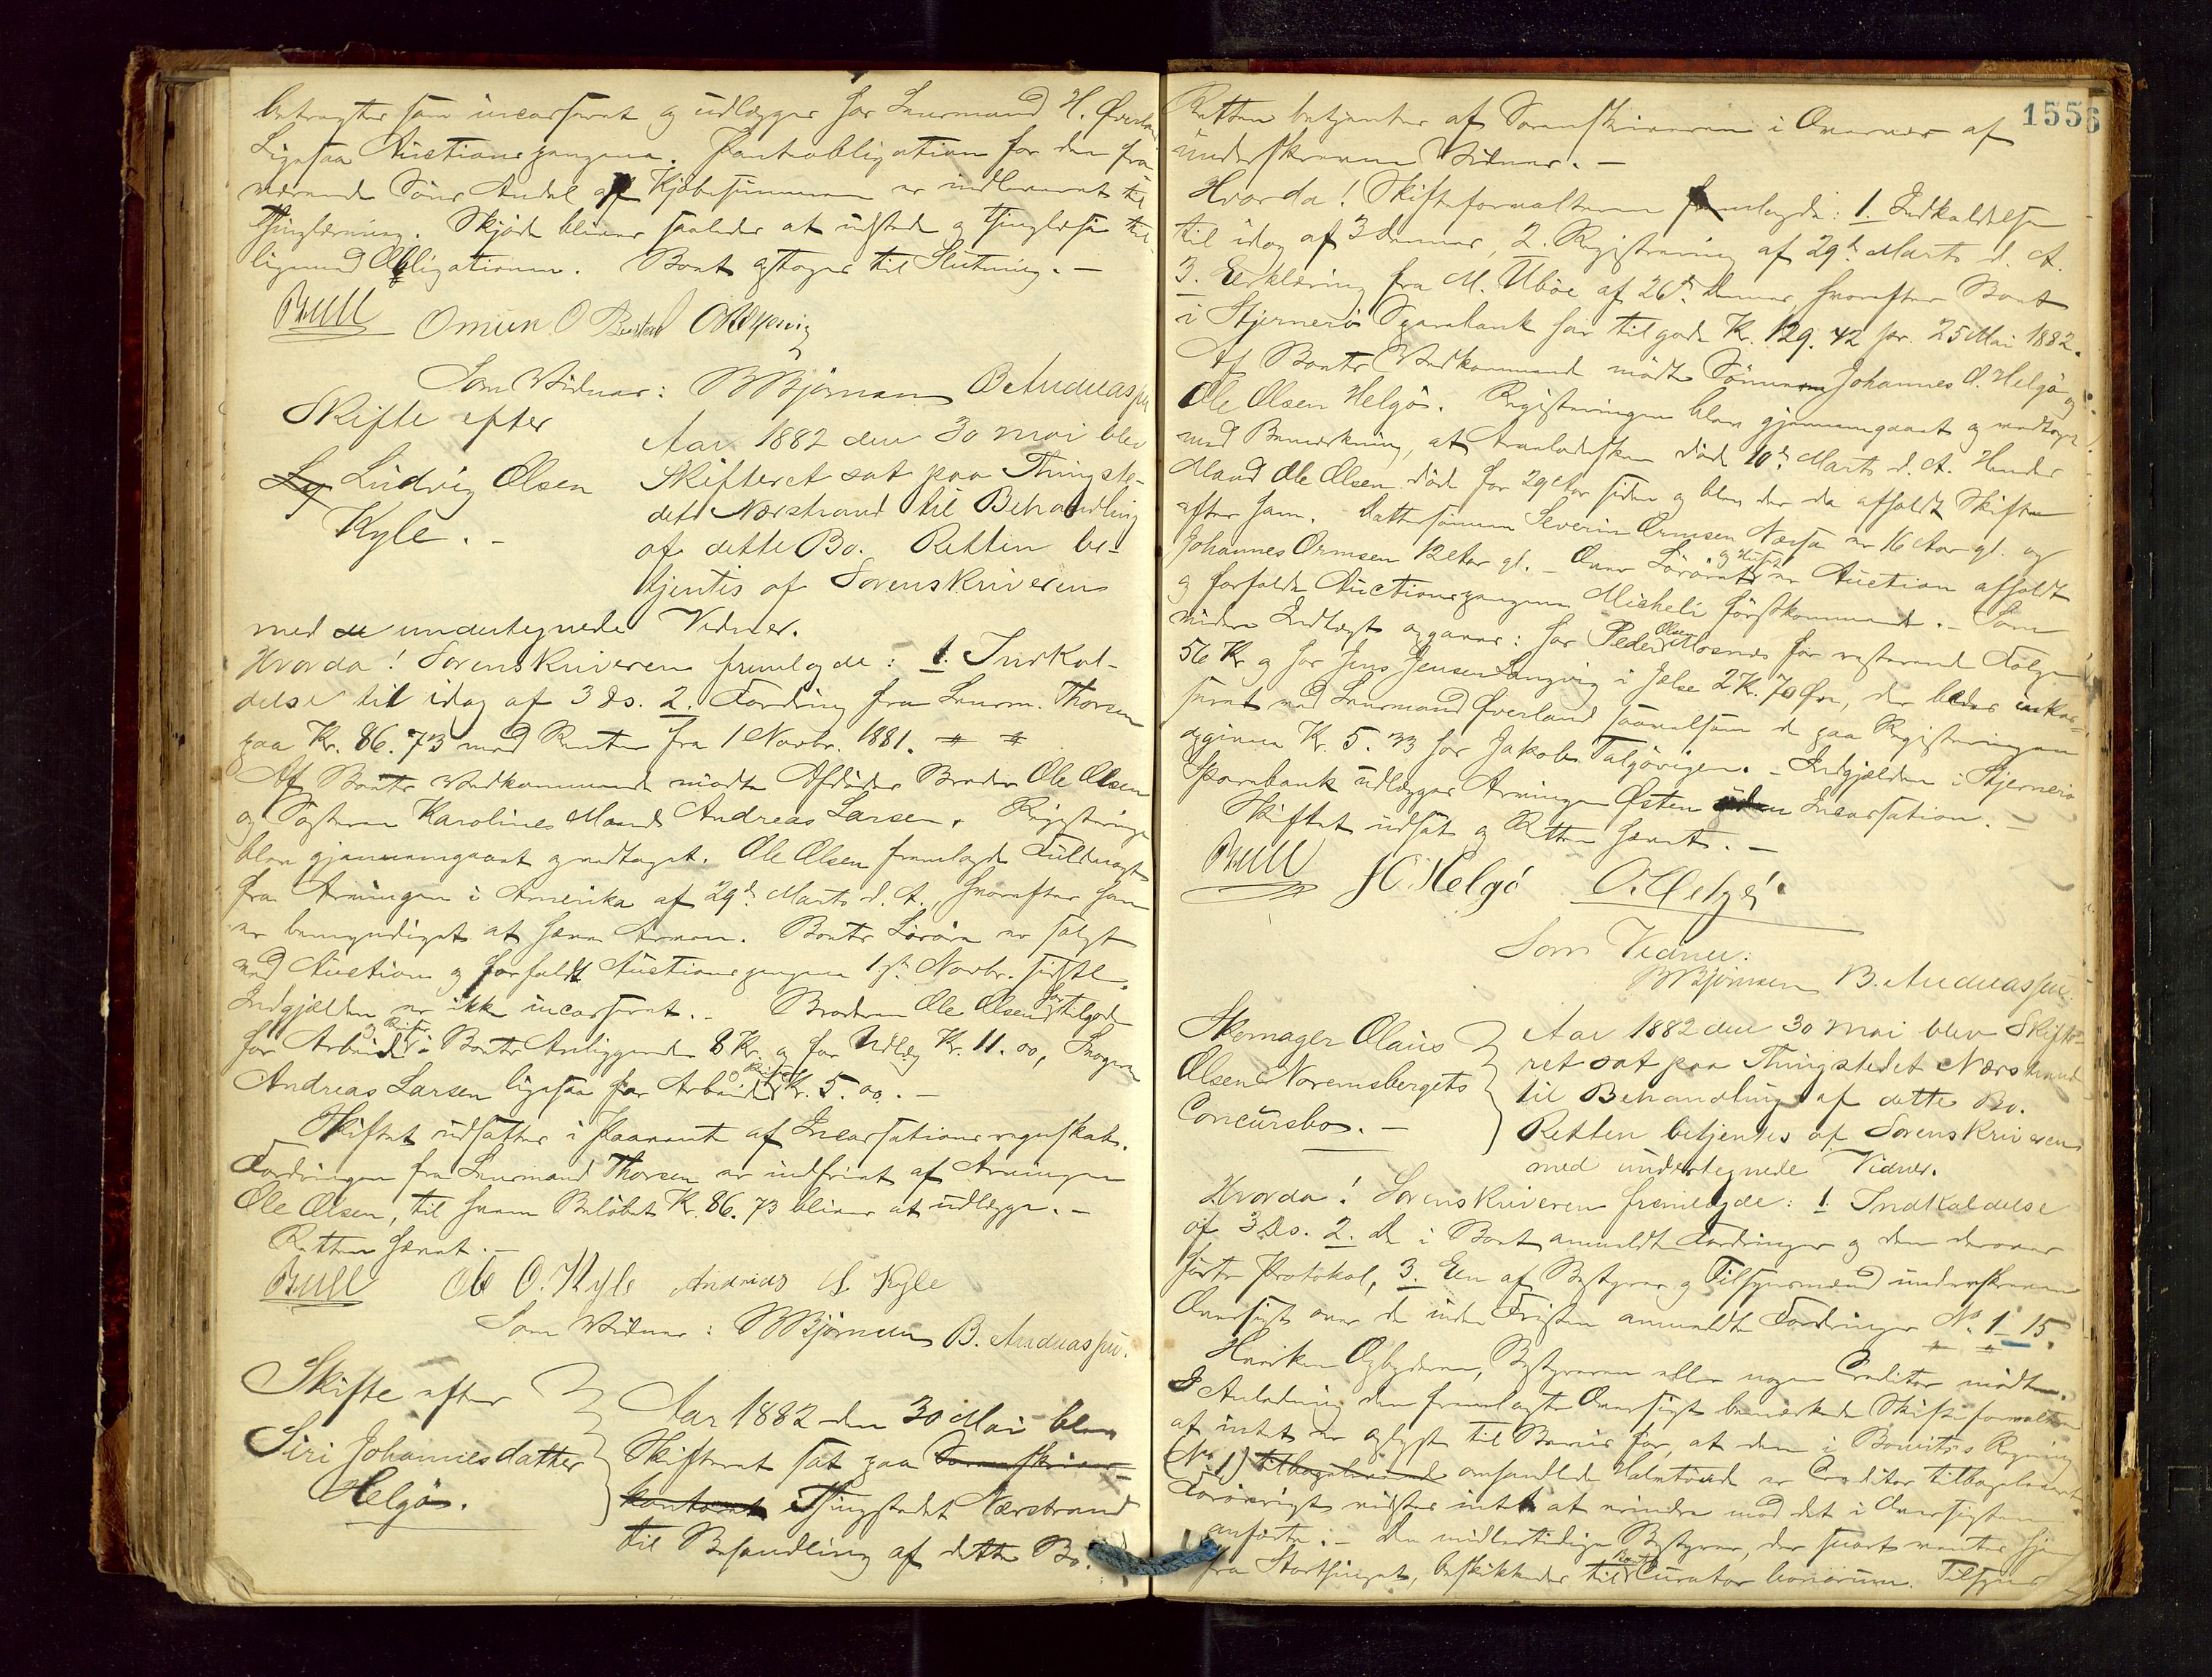 betragtes som incasseret og udlægges hos Lensmand H. Øverland
Ligesaa Auctionspengene. Panteobligation for den fra-
værende Søns Andel af Kjøbesummen er indleveret til
Thinglæsning. Skjøde bliver saaledes at udstede og thinglæse til-
ligemed Obligationen. Boet optoges til Slutning. -
Bull Omun O
Som Vidner: B Bjørnsen B Andreassen
Skifte efter
Ludvig Olsen
Kyle. -
Aar 1882 den 30 mai blev
Skifteret sat paa Thingste-
det Nærstrand til Behandling
af dette Bo. Retten be-
tjentes af Sorenskriveren
med de undertegnede Vidner.
Hvorda! Sorenskriveren fremlagde: 1. Indkal-
delse til idag af 3 ds. 2. Fordring fra Lensm. Thorsen
paa Kr. 86.73 med Renter fra 1 Novbr. 1881.
Af Boets Vedkommende mødte Afdødes Broder Ole Olsen
og Søsteren Karolines Mand Andreas Larsen. Registringen
blev gjennemgaaet og vedtaget. Ole Olsen fremlagde Fuldmagt
fra Arvingen i Amerika af 29de Marts d. A., hvorefter han
er bemyndiget at hæve Arven. Boets Løsøre er solgt
ved Auction og forfaldt Auctionspengene 1ste Novbr. sidstl.
Indgjælden er ikke incasseret. - Broderen Ole Olsen har tilgode
for Arbeide og Reiser i Boets Anliggende 8 Kr. og for Udlæg Kr. 11.00, Svogeren
Andreas Larsen ligesaa for Arbeide og Reiser Kr. 5.00. -
Skiftet udsættes i Paavente af Incassationsregnskab.
Fordringen fra Lensmand Thorsen er indfriet af Arvingen
Ole Olsen, til hvem Beløbet Kr. 86.73 bliver at udlægge. -
Retten hævet. -
Bull Ole O. Kyle Andreas L Kyle
Som Vidner: B Bjørnsen B. Andreassen.
Skifte efter
Siri Johannesdatter
Helgø.
Aar 1882 den 30 Mai blev
Skifteret sat paa Sorenskriver-
kontoret Thingstedet Nærstrand
til Behandling af dette Bo.
1556
Retten betjentes af Sorenskriveren i Overvær af
underskrevne Vidner. -
Hvorda! Skifteforvalteren fremlagde: 1. Indkaldelse
til idag af 3 dennes, 2. Registrering af 29de Marts d. A.
3. Erklæring fra M. Ubøe af 26de dennes, hvorefter Boet
i Stjernerø Sparebank har tilgode Kr. 129.42 pr. 25 Mai 1882.
Af Boets Vedkommende mødte Sønnerne Johannes O. Helgø og
Ole Olsen Helgø. Registreringen blev gjennemgaaet og vedtaget
med Bemærkning, at Arveladersken døde 10de Marts d. A. Hendes
Mand Ole Olsen døde for 29 Aar siden og blev der da afholdt Skifte
efter ham. Dattersønnen Severin Ormsen er 16 Aar gl. og
Johannes Ormsen 12 Aar gl. - Over Løsøret er Auction afholdt
og forfalde Auctionspengene Micheli førstkommende. - Som
videre Indtægt opgaves: hos Peder Olsen for resterende Følge
56 Kr. og hos Jens Jensen Langvig i Jelse 2 Kr. 70 Øre, der bedes inkas-
seret ved Lensmand Øverland saavelsom de paa Registreringen
opgivne Kr. 5.33 hos Jakob Talgøvigen. - Indgjælden i Stjernerø
Sparebank udlægges Arvingen Østen uden Incassation. -
Skiftet udsat og Retten hævet. -
Bull J O Helgø O. Helgø.
Som Vidner:
B Bjørnsen B. Andreassen.
Skomager Olaus
Olsen Noremsbergets
Concursbo. -
Aar 1882 den 30 mai blev Skifte-
ret sat paa Thingstedet Nærstrand
til Behandling af dette Bo.
Retten betjentes af Sorenskriveren
med undertegnede Vidner.
Hvorda! Sorenskriveren fremlagde: 1. Indkaldelse
af 3 ds. 2. de i Boet anmeldte Fordringer og den derover
førte Protokol, 3. En af Bestyrer og Tilsynsmænd underskreven
Oversigt over de inden Fristen anmeldte Fordringer No. 1-15.
Hverken Opbyderen, Bestyreren eller nogen Creditor mødte.
I Anledning den fremlagte Oversigt bemærkede Skifteforvalteren
at intet er oplyst til Beviis for, at den i Regning
(No 1) tilbageleverede omhandlede er Creditor tilbageleveret.
Forøvrigt vidstes intet at erindre mod det i Oversigten
anførte. - Den midlertidige Bestyrer, der snart ventes hjem
fra Storthinget, beskikkedes til Boets Curator bonorum. Tilsyns-